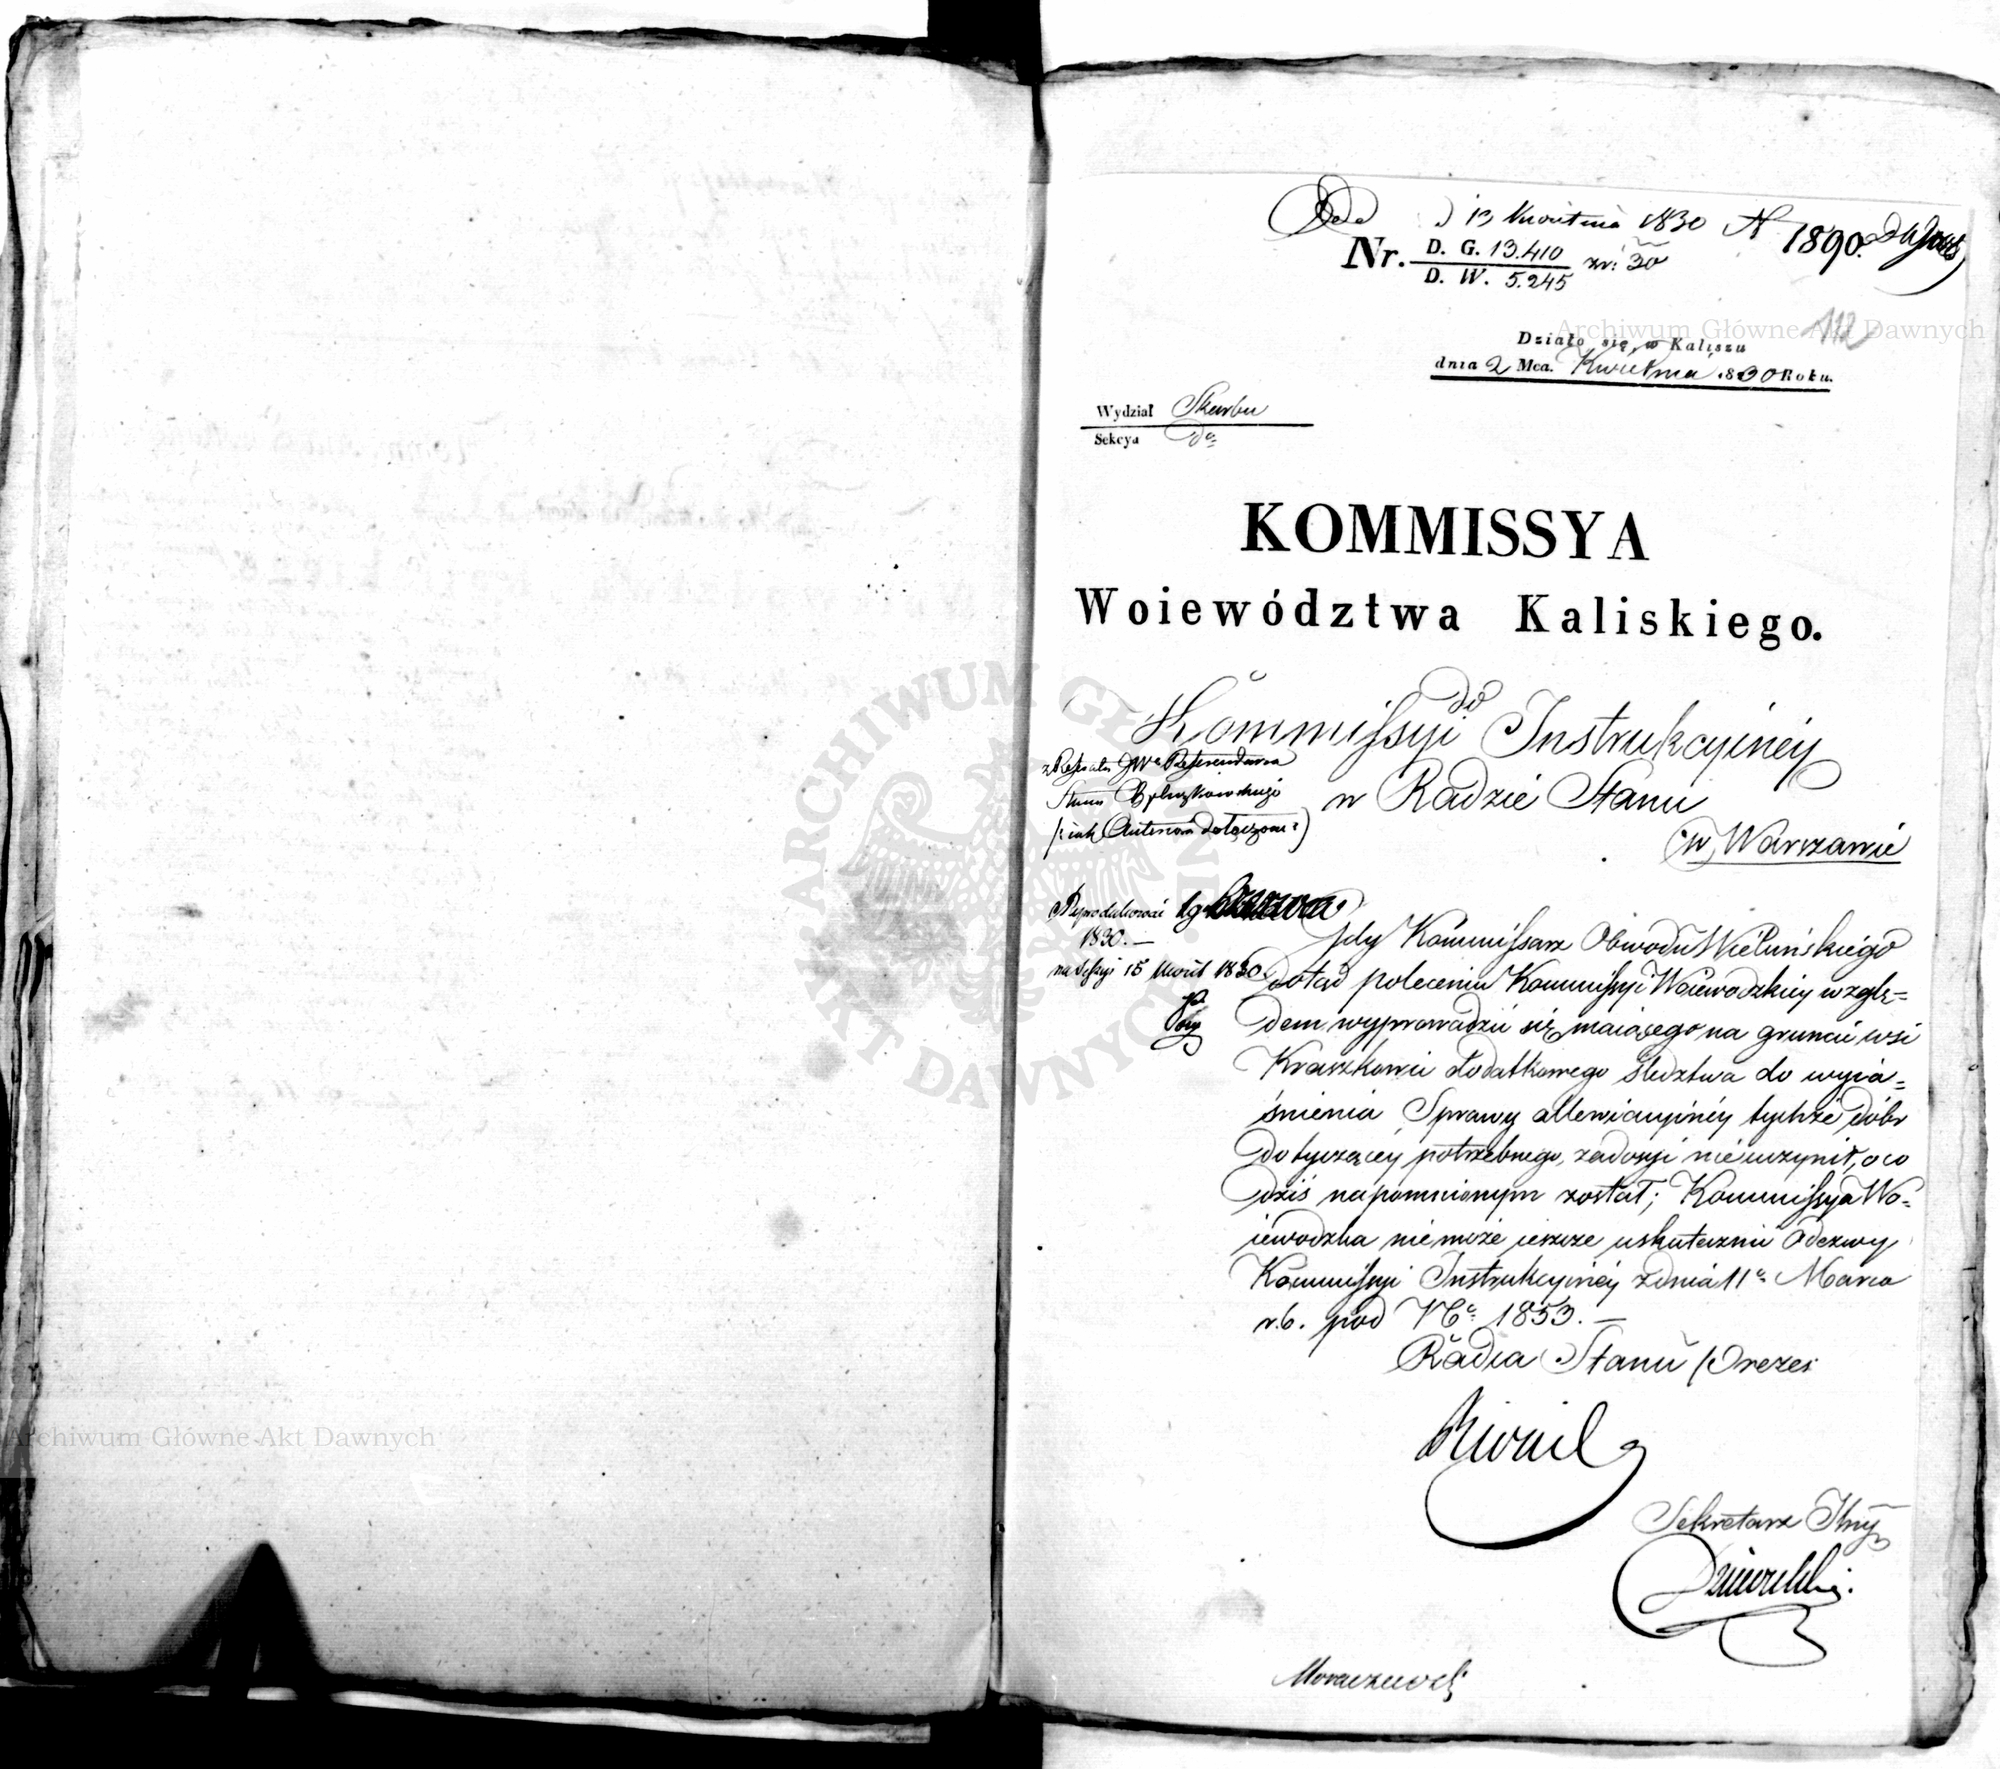 d 13 Kwietnia 1830 N 1890.
Nr. D. G. 13.410
D. W. 5.245
112
Działo się w Kaliszu
dnia 2 Mca. Kwietnia 1830 Roku.
Wydział Skarbu
Sekcya
KOMMISSYA
Woiewództwa Kaliskiego.
do
Kommissyi Instrukcyiney
w Radzie Stanu
w Warszawie
z Referatu JWo Referendarza
Stanu
1830.—
na Sessyi 15 Kwiet 1830.
Gdy Kommissarz Obwodu Wieluńskiego
dotąd poleceniu Kommissyi Woiewodzkiey wzglę=
dem wyprowadzić się maiącego na gruncie wsi
Kraszkowic dodatkowego śledztwa do wyia=
śnienia Sprawy allewiacyiney tychże dóbr
dotyczącey potrzebnego, zadosyć nie uczynił, o co
dziś napomnionym został; Kommissya Wo=
iewodzka nie może ieszcze uskutecznić Odezwy
Kommissyi Instrukcyiney z dnia 11o Marca
r. b. pod No 1853.—
Radca Stanu Prezes
Sekretarz Jlny
Moraczewski
Archiwum Główne Akt Dawnych
Archiwum Główne Akt Dawnych
ARCHIWUM GŁÓWNE AKT DAWNYCH